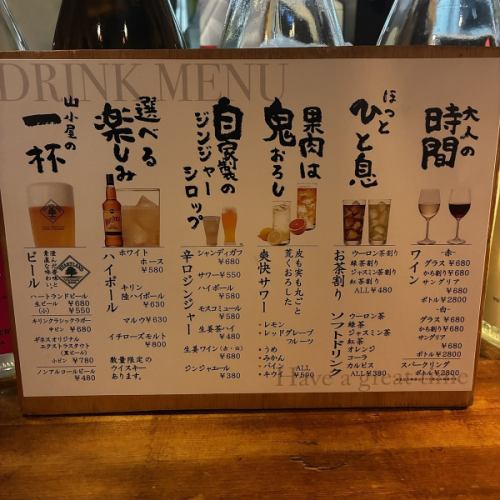 DRINK MENU
大人の
時間
ワイン
-赤-
グラス ¥680
かち割り ¥680
サングリア
¥680
ボトル ¥2800
-白-
グラス ¥680
かち割り ¥680
サングリア
¥680
ボトル ¥2800
スパークリング
ボトル ¥2800
ほっと
ひと息
お茶割り
ウーロン茶割り
緑茶割り
ジャスミン茶割り
紅茶割り
ALL ¥480
ソフトドリンク
ウーロン茶
緑茶
ジャスミン茶
紅茶
オレンジ
コーラ
カルピス
ALL ¥380
果肉は
鬼おろし
皮も実も丸ごと
荒くおろした
爽快サワー
・レモン
・レッドグレープ
フルーツ
・うめ
・みかん
・パイン
・キウイ
ALL
¥590
自家製の
ジンジャー
シロップ
辛口ジンジャー
シャンディガフ
¥680
サワー ¥550
ハイボール
¥580
モスコミュール
¥580
生姜茶ハイ
¥480
生姜ワイン(赤・白)
¥680
ジンジャエール
¥380
選べる
楽しみ
ハイボール
ホワイト
ホース
¥580
キリン
陸ハイボール
¥630
マルウ ¥630
イチローズモルト
¥800
数量限定の
ウイスキー
あります。
山小屋の
一杯
ビール
HEARTLAND
ハートランドビール
生ビール ¥680
(小) ¥550
キリンクラシックラガー
中ビン ¥680
ギネスオリジナル
エクストラスタウト
(黒ビール)
小ビン ¥780
ノンアルコールビール
¥480
Have a great time